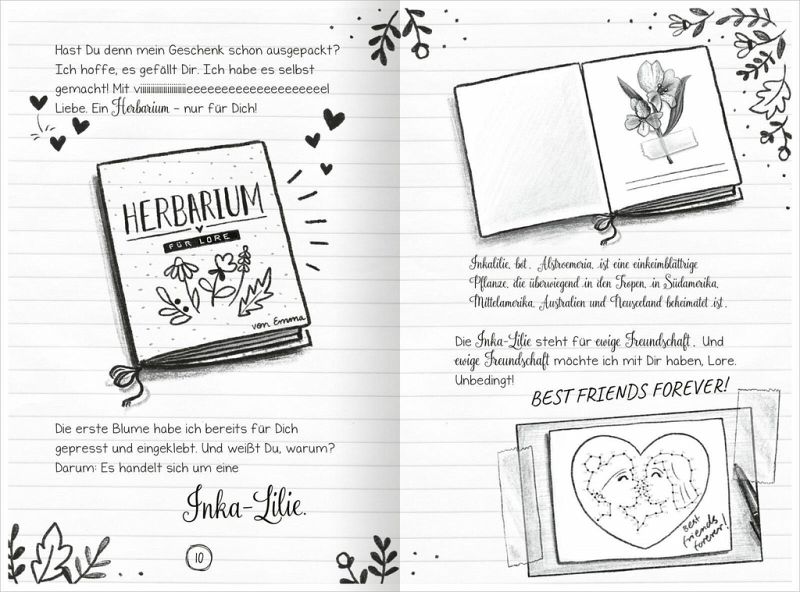 Hast Du denn mein Geschenk schon ausgepackt?
Ich hoffe, es gefällt Dir. Ich habe es selbst
gemacht! Mit viiiiiiiiiiiiiiiiiiiiiieeeeeeeeeeeeeeeeeeeel
Liebe. Ein Herbarium – nur für Dich!
HERBARIUM
FÜR LORE
von Emma
Die erste Blume habe ich bereits für Dich
gepresst und eingeklebt. Und weißt Du, warum?
Darum: Es handelt sich um eine
Inka-Lilie.
10
Inkalilie, bot. Alstroemeria, ist eine einkeimblättrige
Pflanze, die überwiegend in den Tropen, in Südamerika,
Mittelamerika, Australien und Neuseeland beheimatet ist.
Die Inka-Lilie steht für ewige Freundschaft. Und
ewige Freundschaft möchte ich mit Dir haben, Lore.
Unbedingt!
BEST FRIENDS FOREVER!
best
friends
forever!